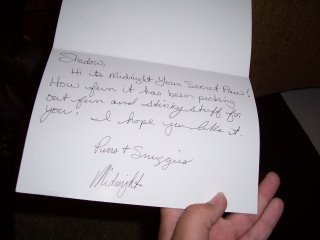 Shadow,
Hi its Midnight Your Secret Paw!
How fun it has been picking
out fun and stinky stuff for
you! I hope you like it.
Purrs + Snuggies
Midnight